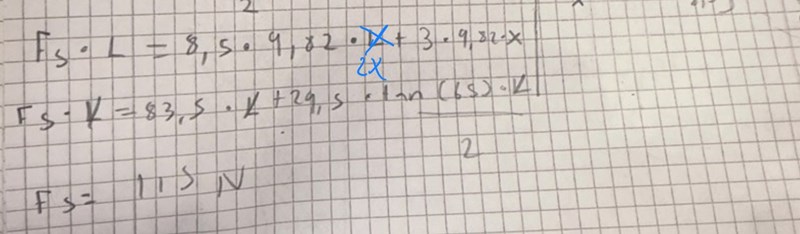 2
Fs · L = 8,5 · 9,82 · + 3 · 9,82 · x
2x
Fs · L = 83,5 · L + 29,5 · tan (65) · L
2
Fs = 115 N